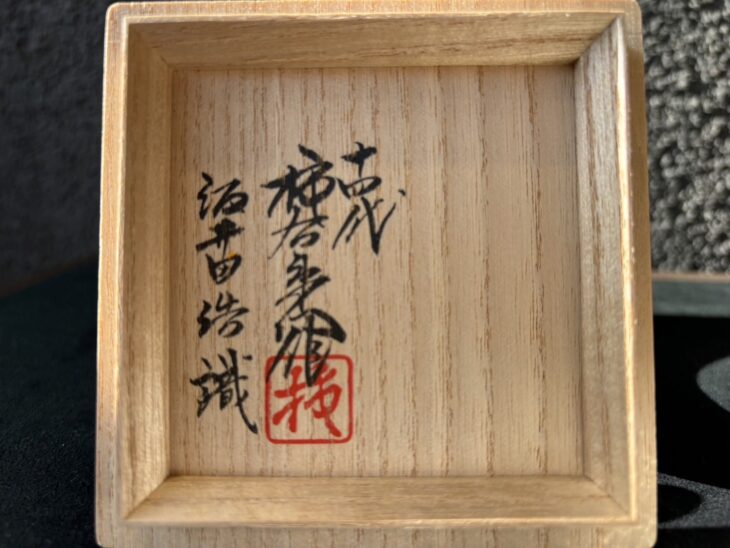 十四代
柿右衛門作
酒井田浩識